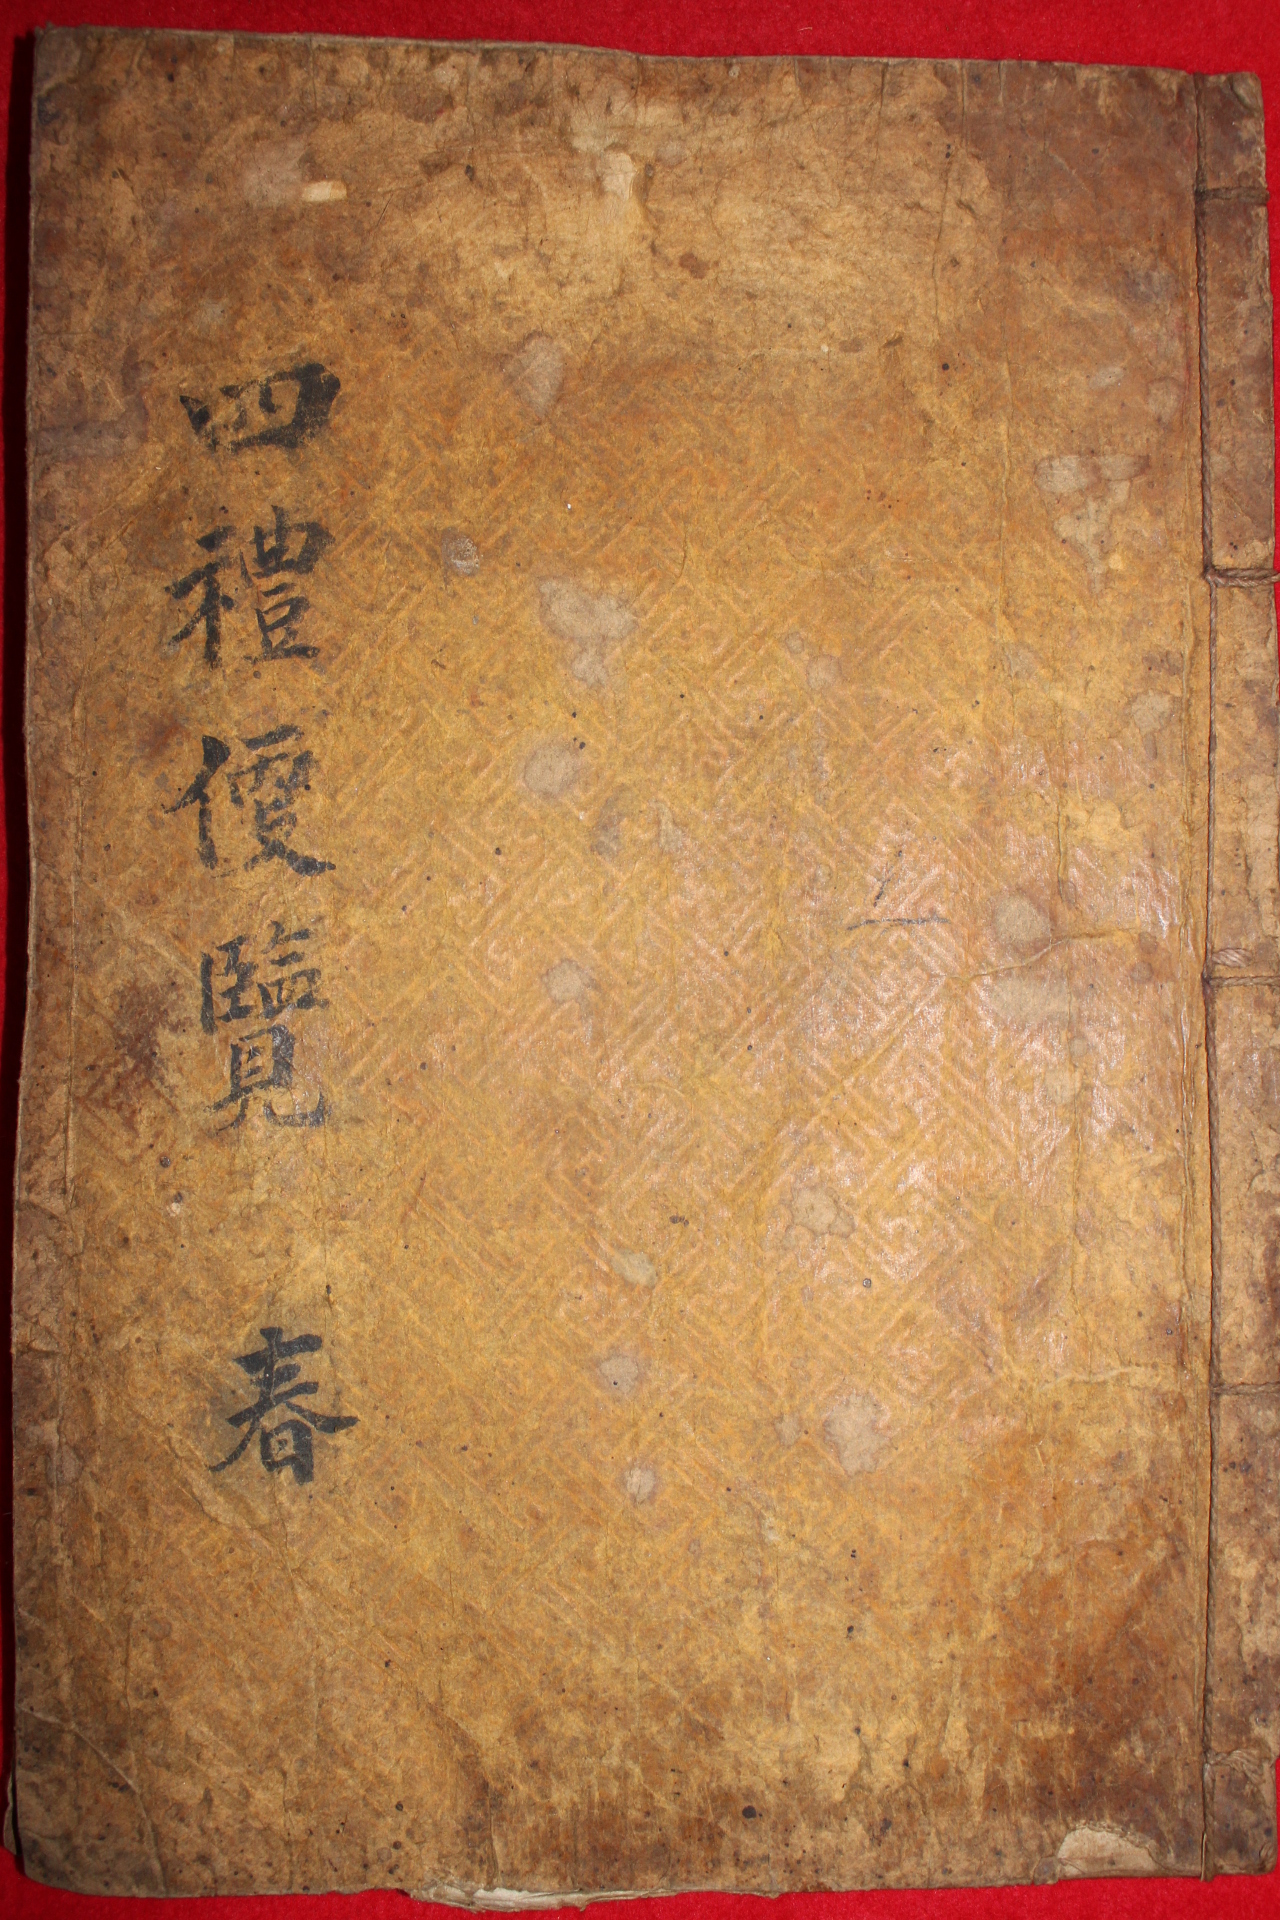 四禮便覽 春